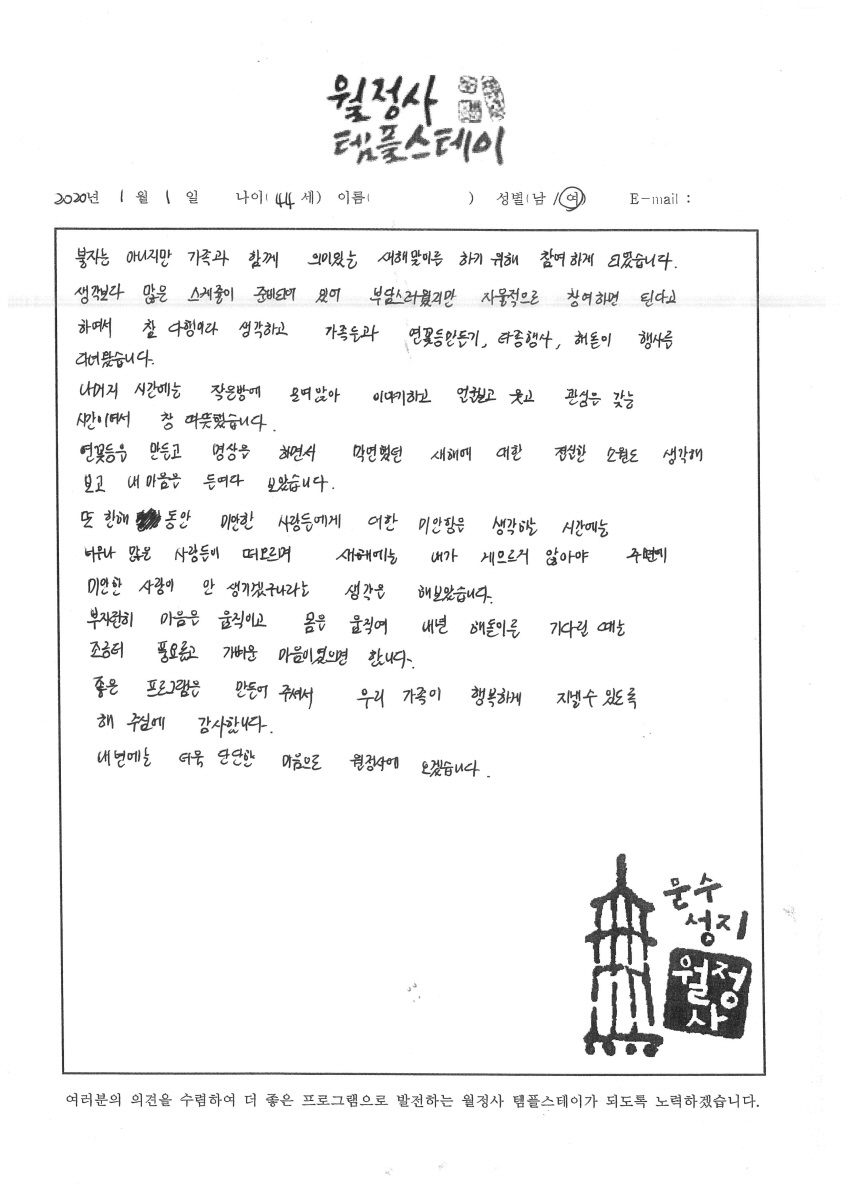 월정사
템플스테이
2020년 1월 1일 나이(44세) 이름( ) 성별(남/여) E-mail :
불자는 아니지만 가족과 함께 의미있는 새해맞이를 하기 위해 참여하게 되었습니다.
생각보다 많은 스케줄이 준비되어 있어 부담스러웠지만 자율적으로 참여하면 된다고
하여서 참 다행이라 생각하고 가족들과 연꽃등만들기, 타종행사, 해돋이 행사를
다녀왔습니다.
나머지 시간에는 작은방에 모여앉아 이야기하고 얼굴보고 웃고 관심을 갖는
시간이여서 참 따뜻했습니다.
연꽃등을 만들고 명상을 하면서 막연했던 새해에 대한 소원도 생각해
보고 내 마음을 들여다 보았습니다.
또 한해 동안 미안한 사람들에게 대한 미안함을 생각하는 시간에는
너무나 많은 사람들이 떠오르며 새해에는 내가 게으르지 않아야 주변에
미안한 사람이 안 생기겠구나라는 생각을 해보았습니다.
부지런히 마음을 움직이고 몸을 움직여 내년 해돋이를 기다릴 때는
조금더 풍요롭고 가벼운 마음이였으면 합니다.
좋은 프로그램을 만들어 주셔서 우리 가족이 행복하게 지낼수 있도록
해 주심에 감사합니다.
내년에는 더욱 단단한 마음으로 월정사에 오겠습니다.
문수
성지
월정
사
여러분의 의견을 수렴하여 더 좋은 프로그램으로 발전하는 월정사 템플스테이가 되도록 노력하겠습니다.